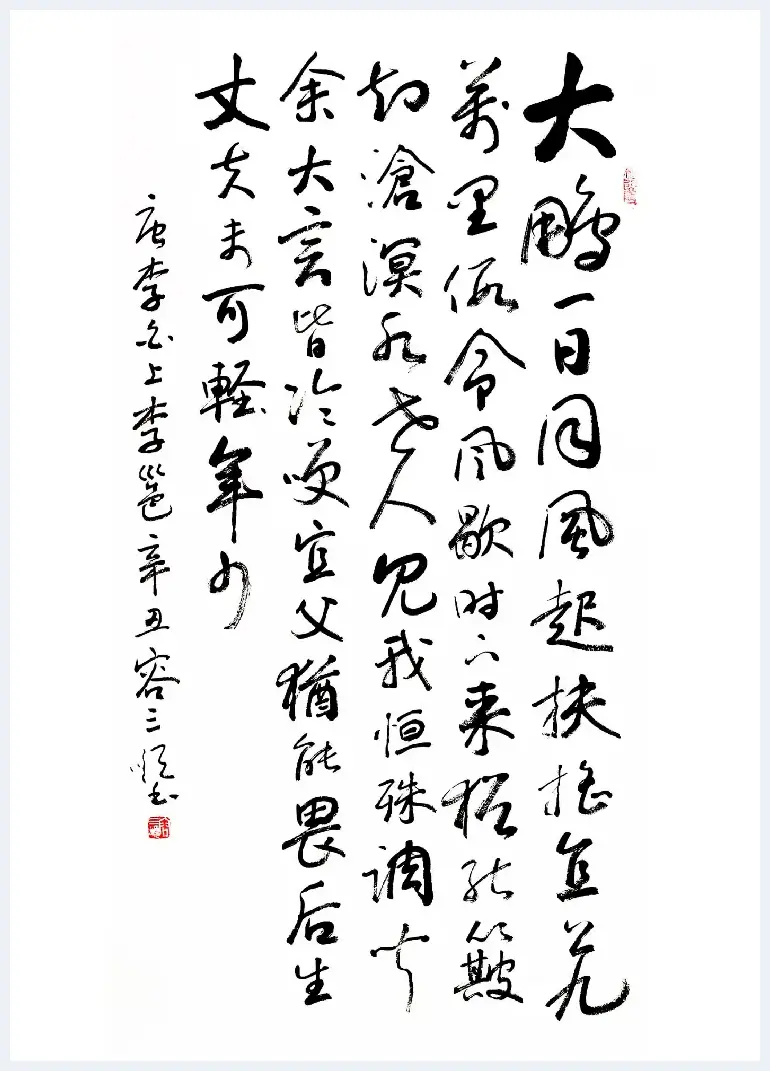 大鵬一日同風起扶摇直上九
萬里假令風歇时不来猶能簸
却滄溟水世人見我恒殊調聞
余大言皆冷笑宣父猶能畏后生
丈夫未可軽年少
唐李白上李邕辛丑容三书